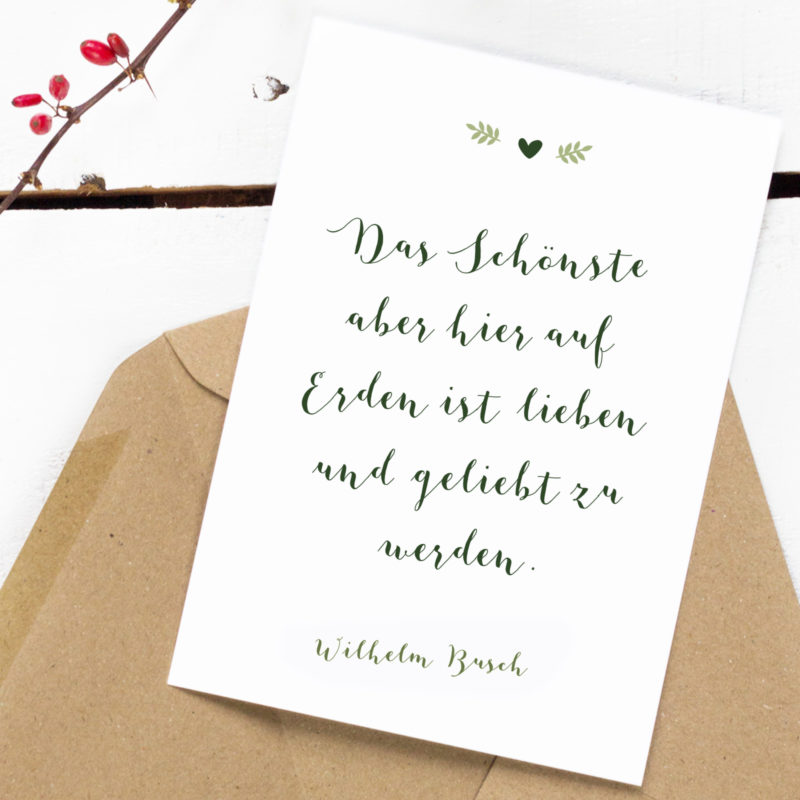 Das Schönste
aber hier auf
Erden ist lieben
und geliebt zu
werden.
Wilhelm Busch